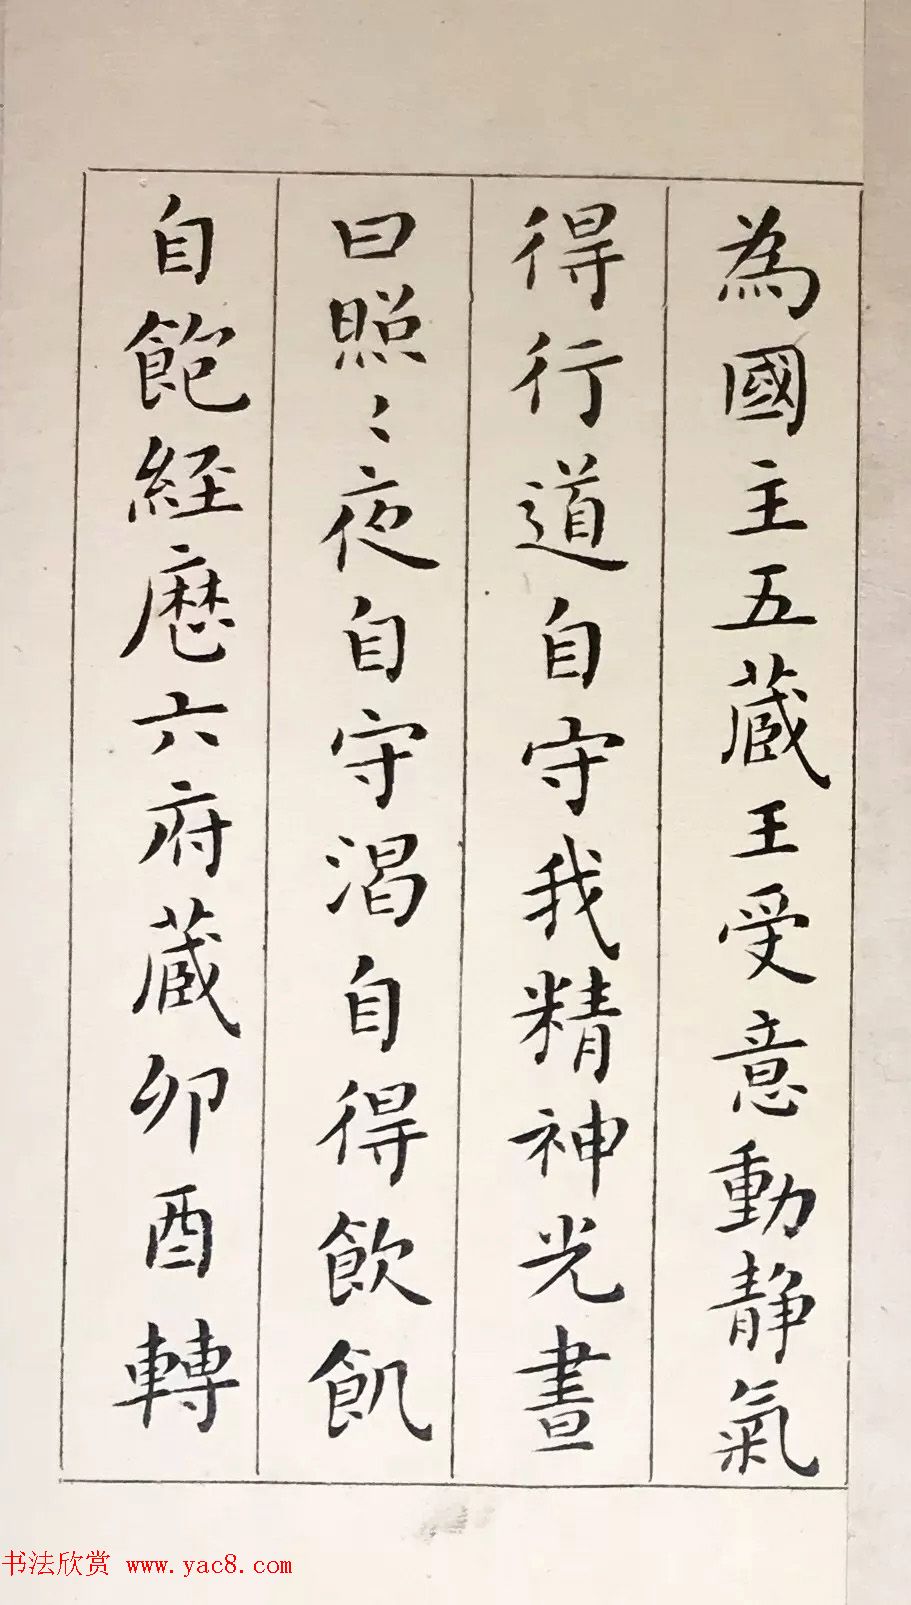 為國主五蔵王受意動静氣
得行道自守我精神光晝
曰照〻夜自守渴自得飲飢
自飽経歴六府蔵卯酉轉
书法欣赏 www.yac8.com